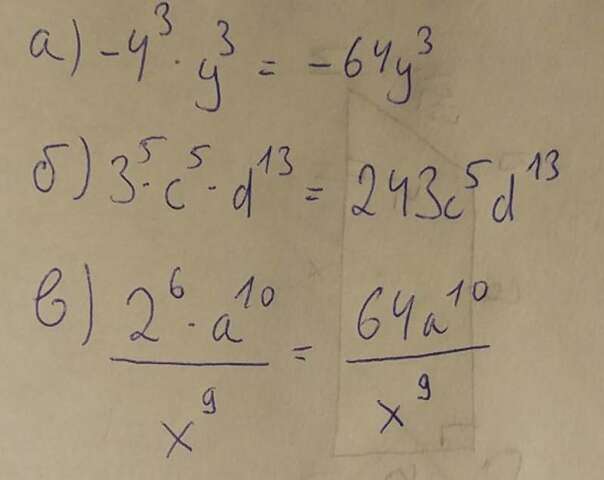 а) -4³ · y³ = -64y³
б) 3⁵ · c⁵ · d¹³ = 243c⁵d¹³
в) 2⁶ · a¹⁰ / x⁹ = 64a¹⁰ / x⁹